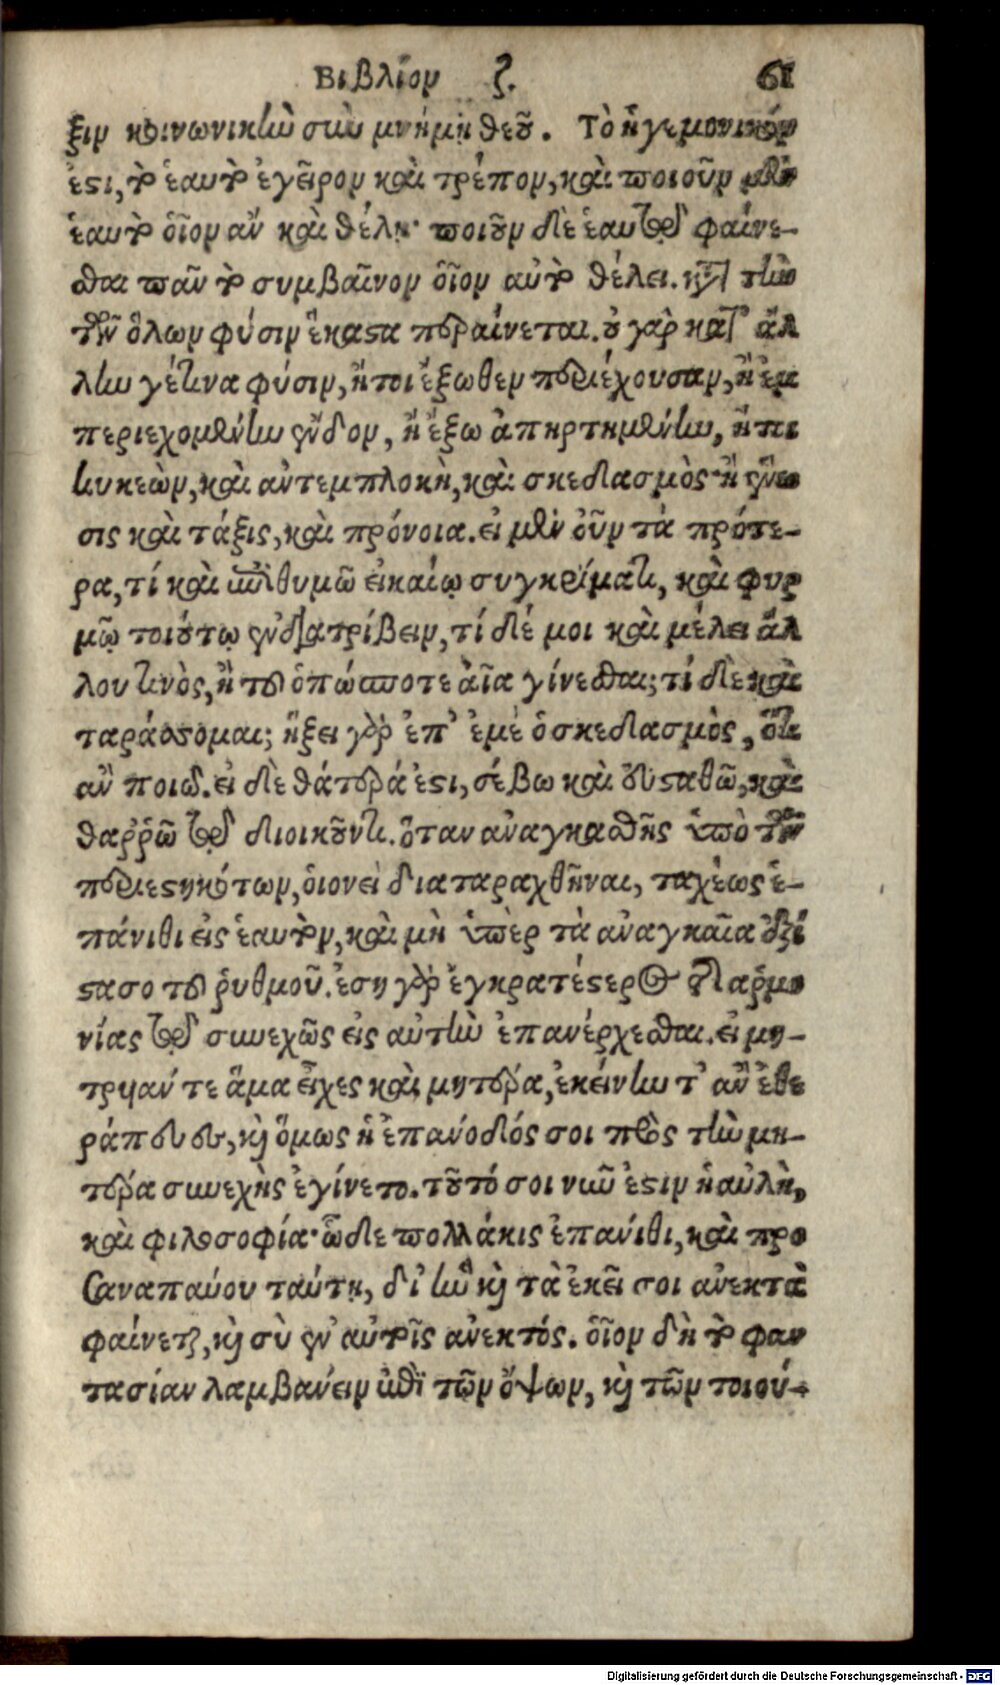 Βιβλίον ζ. 61
ξιν κοινωνικὴν σὺν μνήμῃ θεοῦ. Τὸ ἡγεμονικόν
ἐστι, τὸ ἑαυτὸ ἐγεῖρον καὶ τρέπον, καὶ ποιοῦν μὲν
ἑαυτὸ οἷον ἂν καὶ θέλῃ· ποιοῦν δὲ ἑαυτῷ φαίνε-
σθαι πᾶν τὸ συμβαῖνον οἷον αὐτὸ θέλει. κατὰ τὴν
τῶν ὅλων φύσιν ἕκαστα περαίνεται. οὐ γὰρ κατ' ἄλ
λην γέ τινα φύσιν, ἤτοι ἔξωθεν περιέχουσαν, ἢ ἐμ
περιεχομένην ἔνδον, ἢ ἔξω ἀπηρτημένην, ἤτοι
κυκεὼν, καὶ ἀντεμπλοκὴ, καὶ σκεδασμὸς· ἢ ἕνω
σις καὶ τάξις, καὶ πρόνοια. εἰ μὲν οὖν τὰ πρότε-
ρα, τί καὶ ἐπιθυμῶ εἰκαίῳ συγκρίματι, καὶ φυρ
μῷ τοιούτῳ ἐνδιατρίβειν, τί δέ μοι καὶ μέλει ἄλ
λου τινὸς, ἢ τοῦ ὁπώσποτε ἀῖα γίνεσθαι; τί δὲ καὶ
ταράσσομαι; ἥξει γὰρ ἐπ' ἐμὲ ὁ σκεδασμὸς, ὅτι
ἂν ποιῶ. εἰ δὲ θάτερά ἐστι, σέβω καὶ εὐσταθῶ, καὶ
θαῤῥῶ τῷ διοικοῦντι. ὅταν ἀναγκασθῇς ὑπὸ τῶν
περιεστηκότων, οἱονεὶ διαταραχθῆναι, ταχέως ἐ-
πάνιθι εἰς ἑαυτὸν, καὶ μὴ ὑπὲρ τὰ ἀναγκαῖα ἐξί
στασο τοῦ ῥυθμοῦ. ἔσῃ γὰρ ἐγκρατέστερος τῆς ἁρμο
νίας τῷ συνεχῶς εἰς αὐτὴν ἐπανέρχεσθαι. εἰ μη-
τρυιάν τε ἅμα εἶχες καὶ μητέρα, ἐκείνην τ' ἂν ἐθε
ράπευες, καὶ ὅμως ἡ ἐπάνοδός σοι πρὸς τὴν μη-
τέρα συνεχὴς ἐγίνετο. τοῦτό σοι νῦν ἐστιν ἡ αὐλὴ,
καὶ φιλοσοφία· ὧδε πολλάκις ἐπάνιθι, καὶ προ
σαναπαύου ταύτῃ, δι' ἣν καὶ τὰ ἐκεῖ σοι ἀνεκτὰ
φαίνεται, καὶ σὺ ἐν αὐτοῖς ἀνεκτός. οἷον δὴ τὸ φαν
τασίαν λαμβάνειν ἐπὶ τῶν ὄψων, καὶ τῶν τοιού-
Digitalisierung gefördert durch die Deutsche Forschungsgemeinschaft - DFG